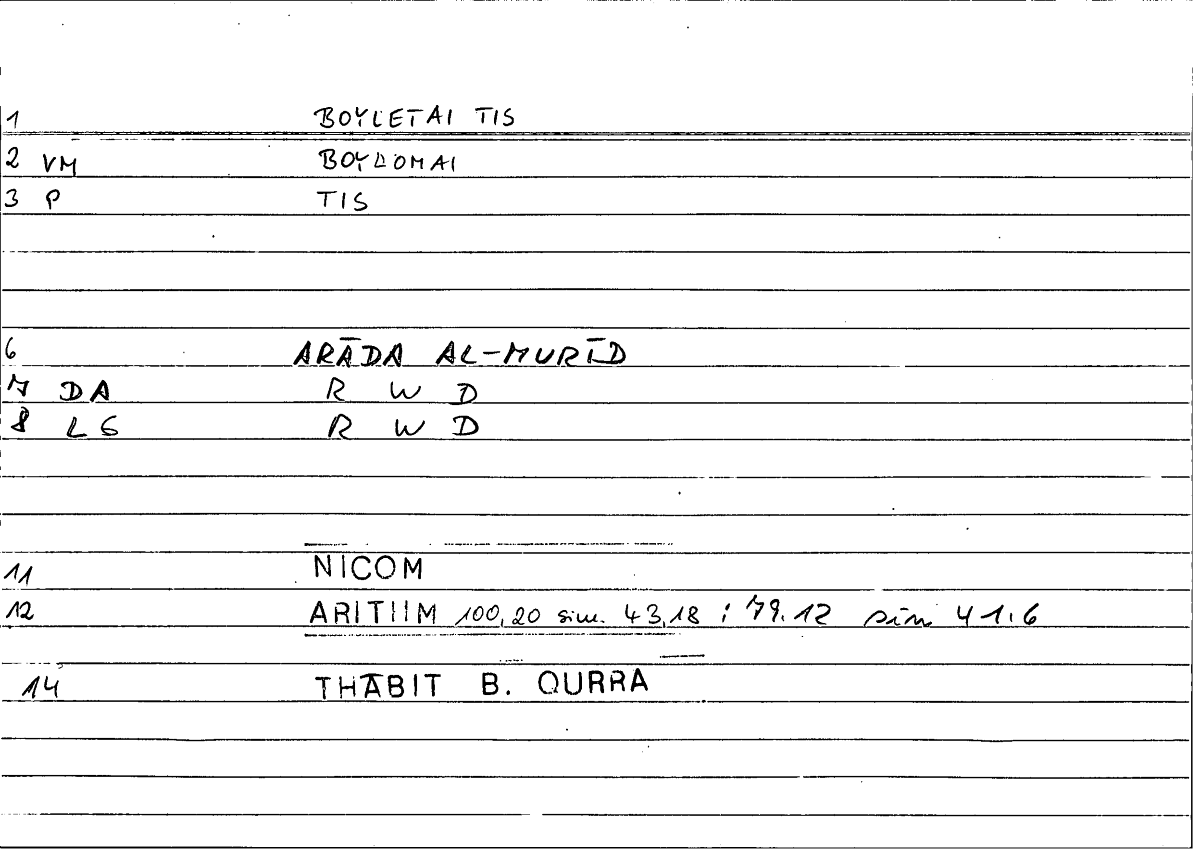 1 BOYLETAI TIS
2 VM BOYLOMAI
3 P TIS
6 ARĀDA AL-MURĪD
7 DA R W D
8 LS R W D
11 NICOM
12 ARITIIM 100,20 sim. 43,18 ; 79.12 sim 41.6
14 THĀBIT B. QURRA